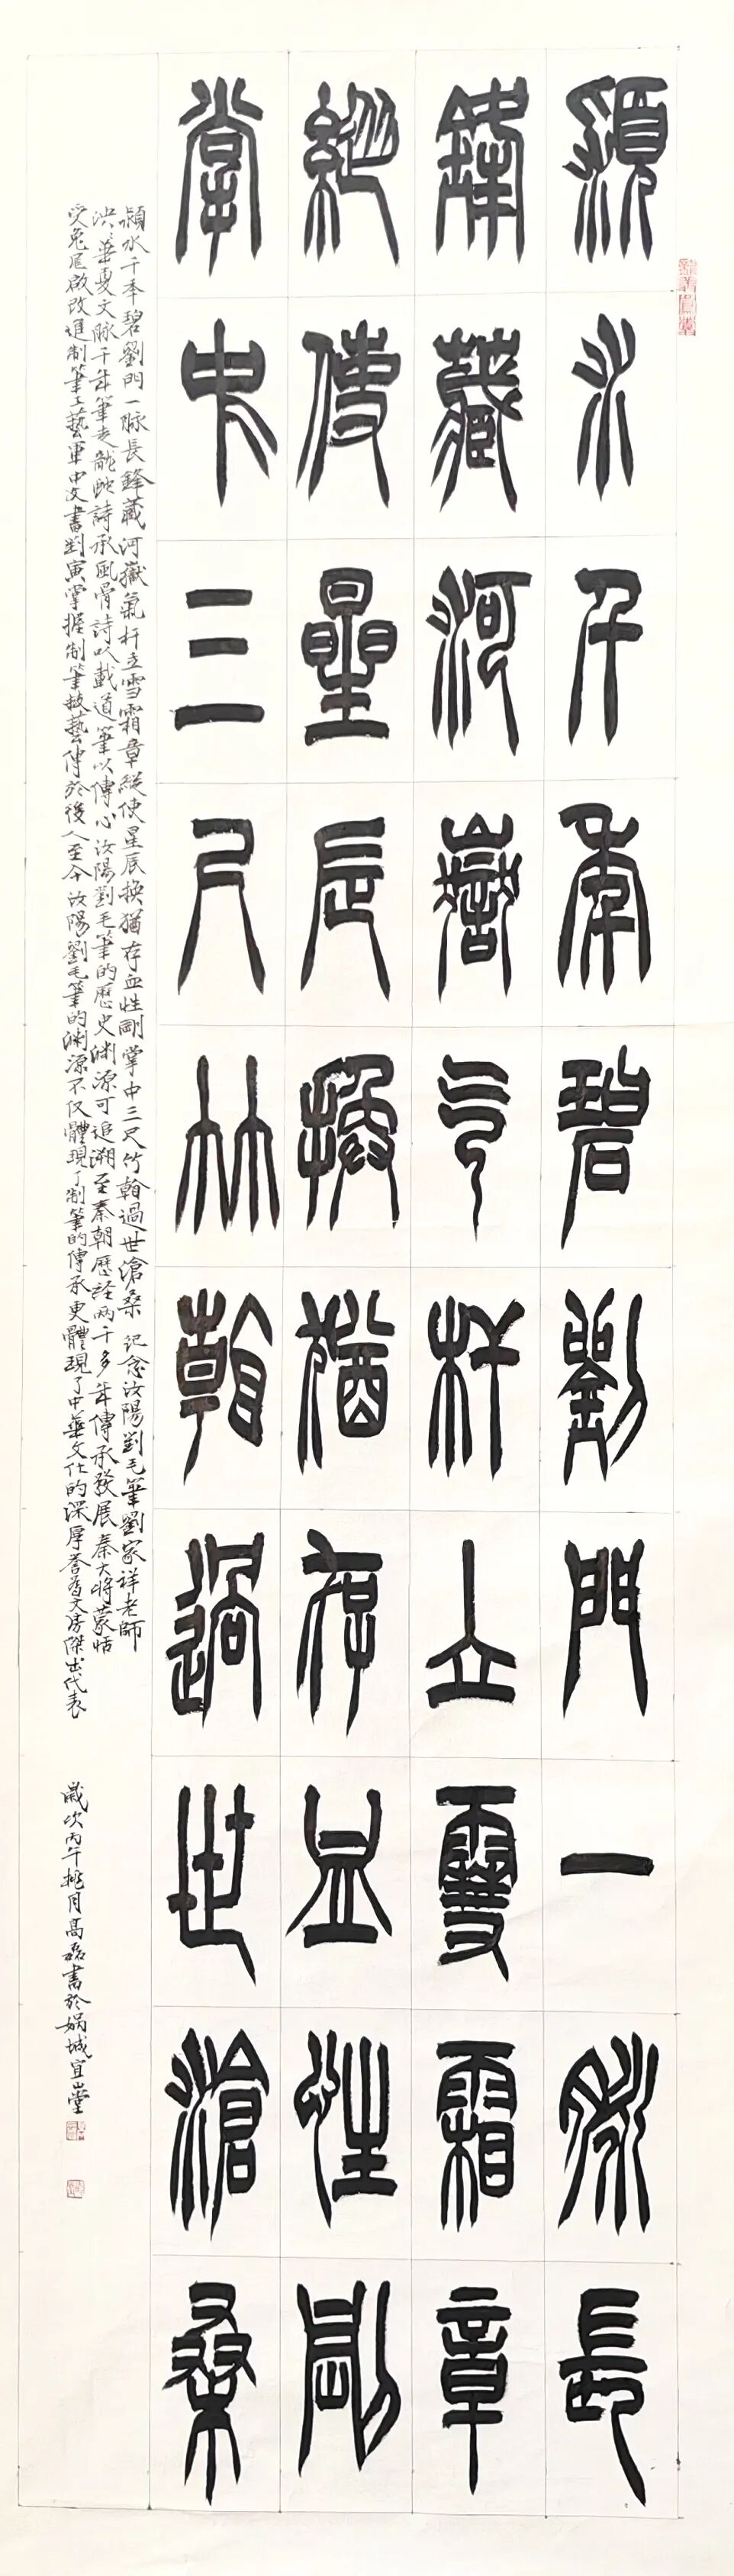 潁水千年碧劉門一脉長
鋒藏河嶽氣杆立雪霜章
縱使星辰換猶存血性剛
掌中三尺竹翰過世滄桑
潁水千年碧劉門一脉長鋒藏河嶽氣杆立雪霜章縱使星辰換猶存血性剛掌中三尺竹翰過世滄桑 紀念汝陽劉毛筆劉家祥老師
洪華夏文脉千年筆走龍蛇詩承風骨詩以載道筆以傳心汝陽劉毛筆的歷史渊源可追溯至秦朝歷経兩千多年傳承發展秦大將蒙恬
受兔尾啟改進制筆工藝軍中文書劉寅掌握制筆技藝傳於後人至今汝陽劉毛筆的渊源不仅體現了制筆的傳承更體現了中華文化的深厚譽爲文房傑出代表
歲次丙午桃月高磊書於娲城宜山堂